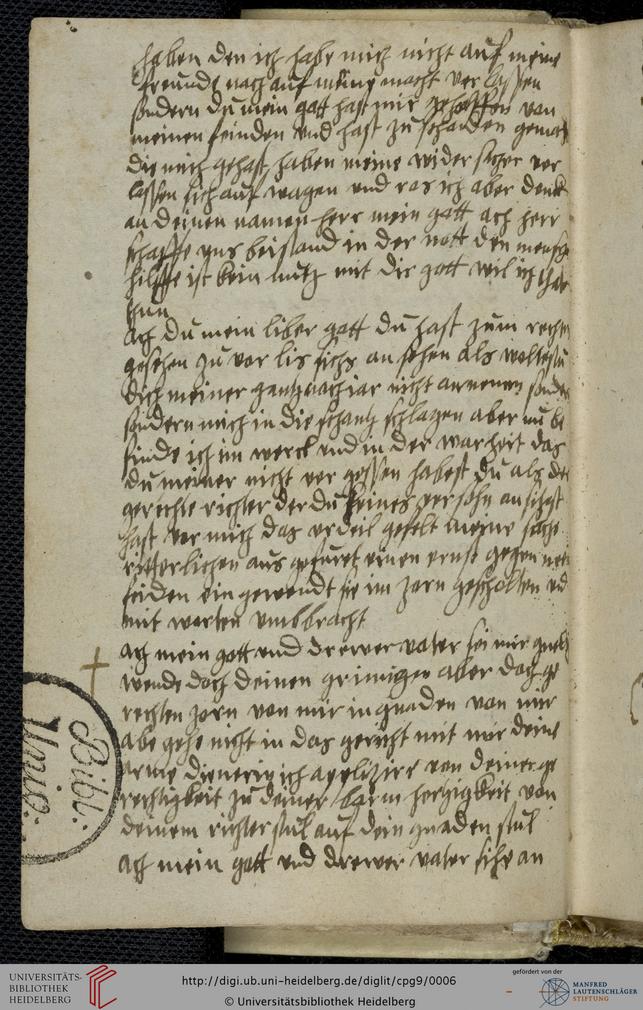 haben den ich habe mich nicht auf meine
freunde nach auf meine macht verlassen
sondern du mein gott hast mir geholffen von
meinen feinden vnd hast zu schanden gemach
die mich gehast haben meine widersacher ver
lassen sich auf wagen vnd ros ich aber denk
an deinen namen herr mein gott ach herr
schaffe vns beistand in der nott den mensch
hilffe ist kein nutz mit dir gott wil ich thate
thun
ach du mein liber gott du hast zum rechte
gesehen zu vor lis sichs an sehen als woltestu
dich meiner gantz nach iar nicht annemen sonder
sondern mich in die schantz schlagen aber nu be
finde ich im werck vnd in der warheit das
du meiner nicht vergessen habest du als der
gerechte richter der du keines persohn ansihest
hast vor mich das vrdeil gefelt meine sache
ritterlichen aus gefuret einen ernst gegen mei
feiden ein gewendt sie im zorn gescholten vd
mit worten vmbbracht
ach mein gott vnd drewer vater sei mir gned
wende doch deinen grimigen aber doch ge
rechten zorn von mir in gnaden von mir
abe gehe nicht in das gericht mit mir deine
arme dienerin ich appelizire von deiner ge
rechtigkeit zu deiner barmhertzigkeit von
deinem richterstul auf dein gnadenstul
ach mein gott vnd drewer vater sihe an
Bibl:
Vniv:
UNIVERSITÄTS-
BIBLIOTHEK
HEIDELBERG
http://digi.ub.uni-heidelberg.de/diglit/cpg9/0006
© Universitätsbibliothek Heidelberg
gefördert von der
MANFRED
LAUTENSCHLÄGER
STIFTUNG